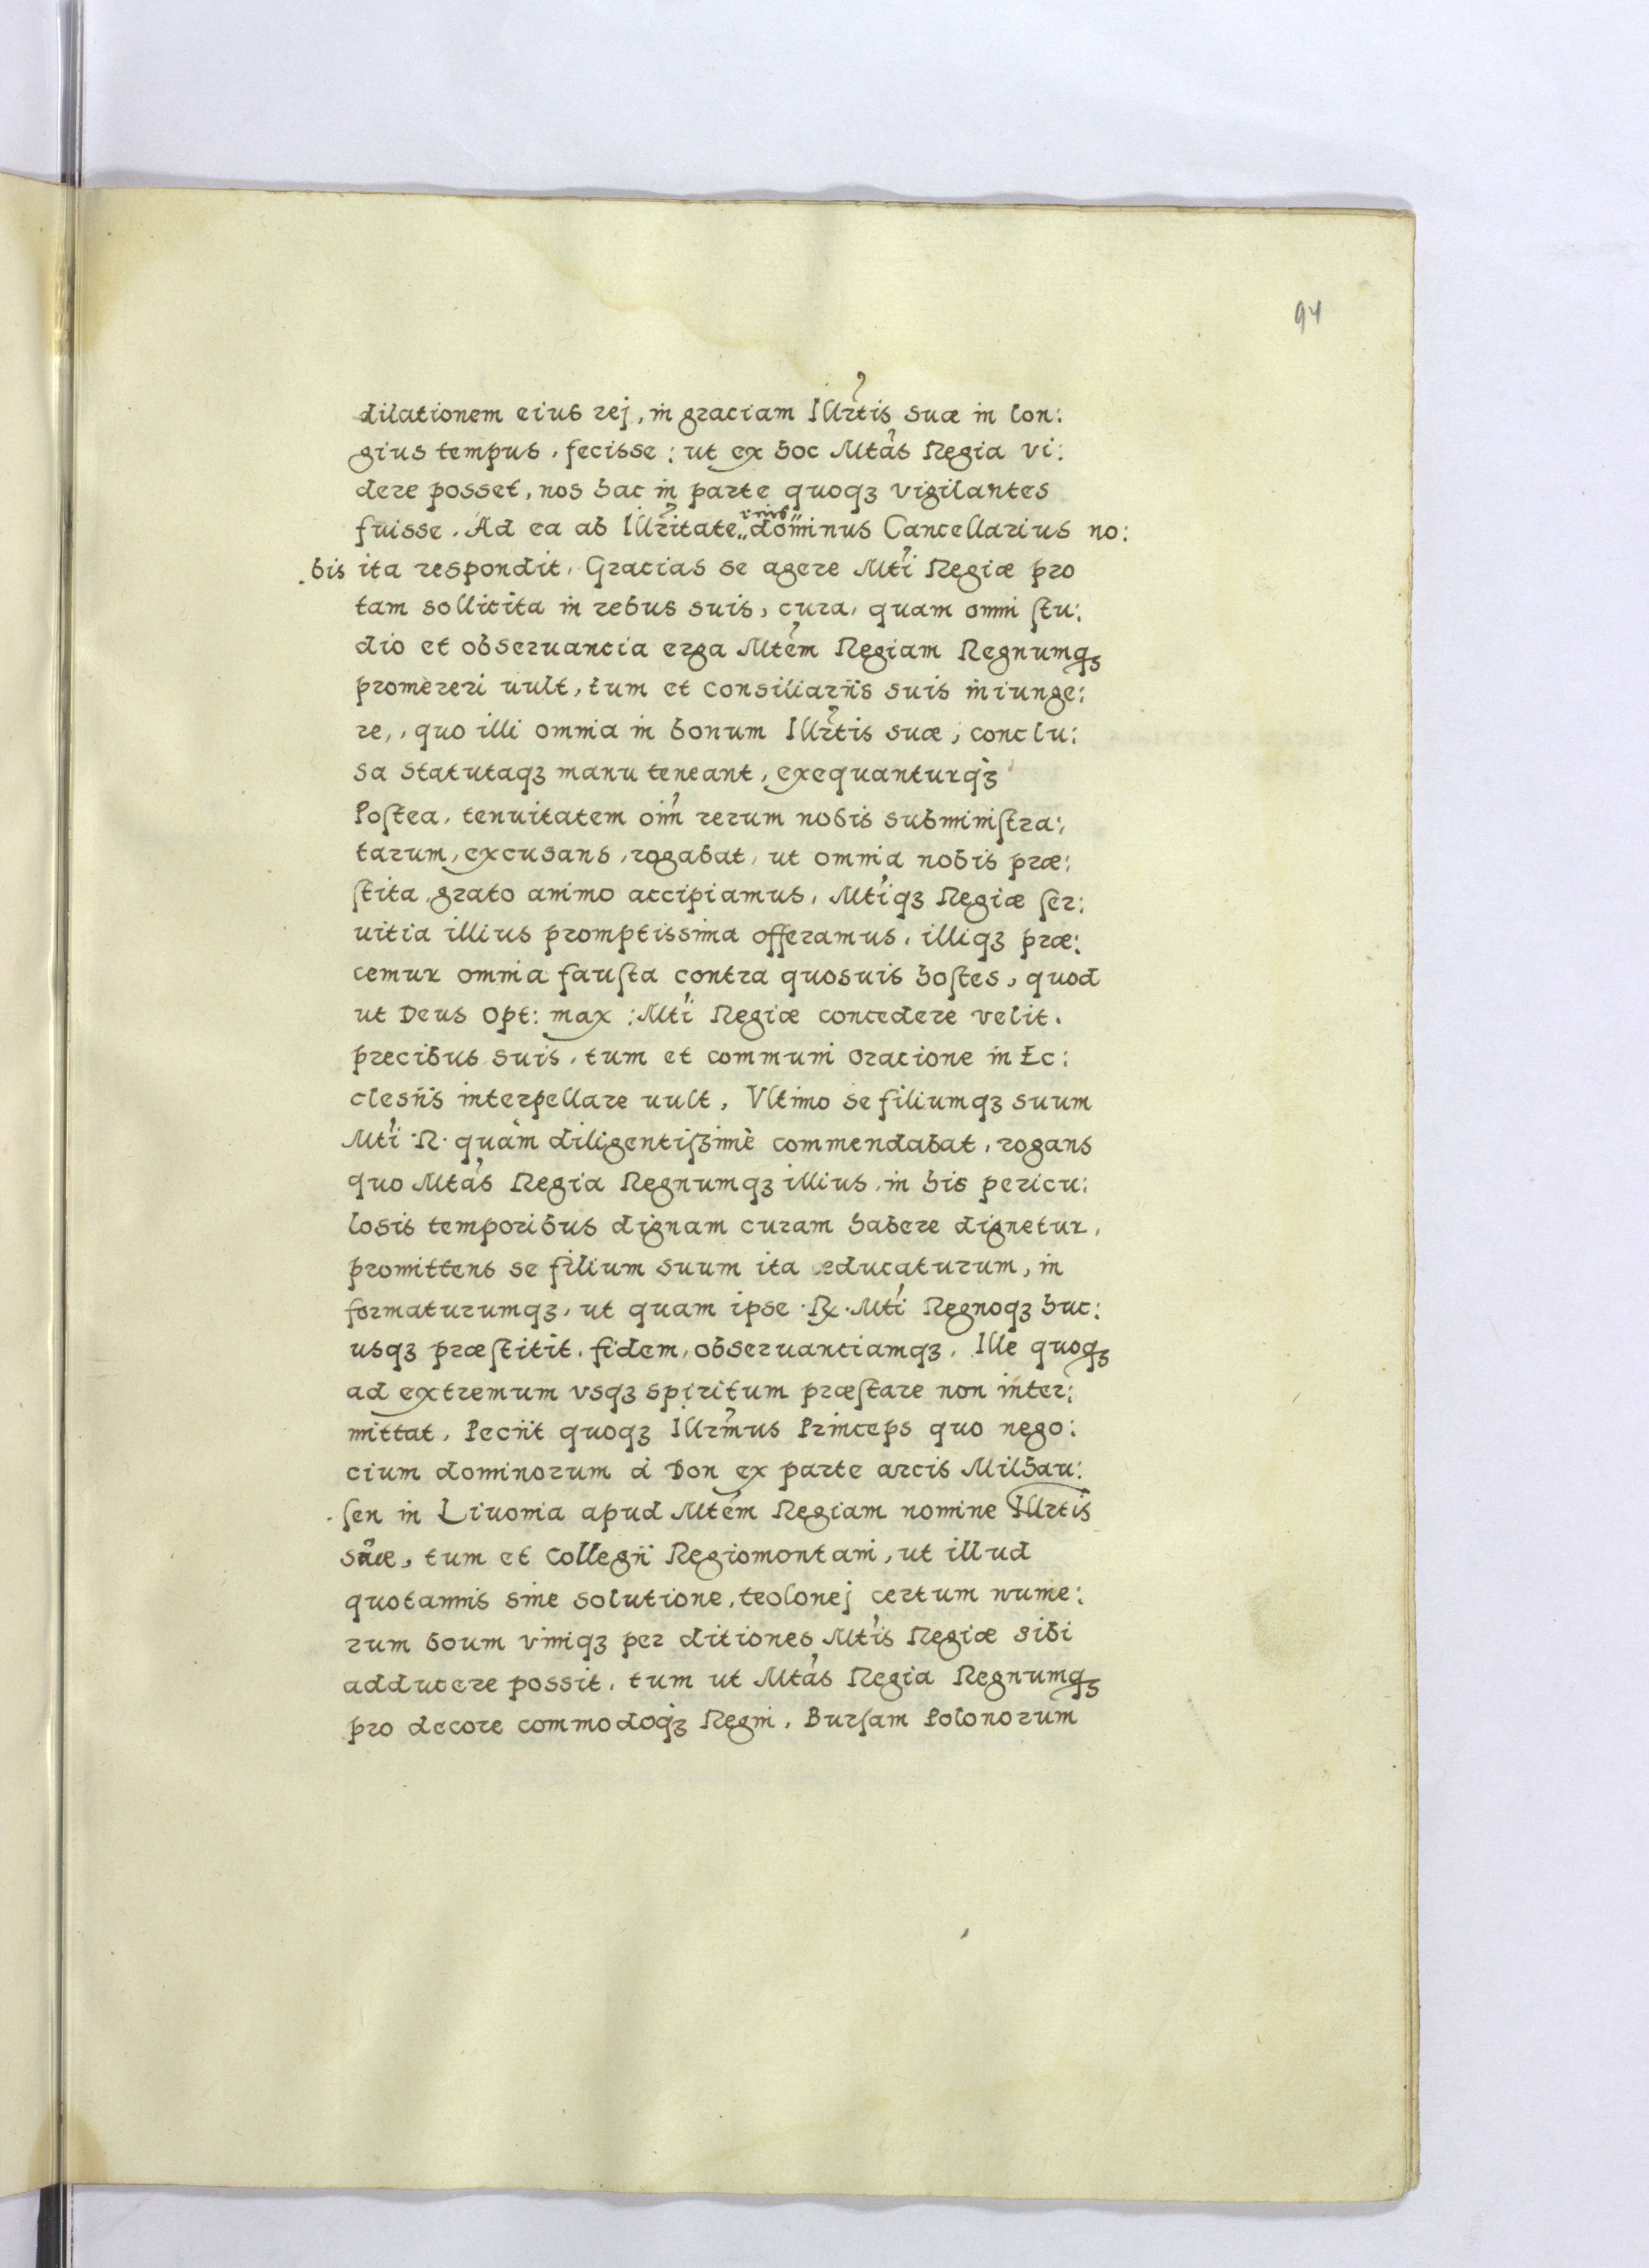 94
dilationem eius rej, in graciam Illrtis suæ in lon:
gius tempus, fecisse: ut ex hoc Mtas Regia vi:
dere posset, nos hac in parte quoqꝫ vigilantes
fuisse. Ad ea ab Illritate dominus Cancellarius no:
bis ita respondit. Gracias se agere Mti Regiæ pro
tam sollicita in rebus suis, cura, quam omni ſtu:
dio et obseruancia erga Mtem Regiam Regnumqꝫ
promereri uult, tum et consiliariis suis iniunge:
re,, quo illi omnia in bonum Illrtis suæ, conclu:
sa statutaqꝫ manu teneant, exequanturqꝫ
Poſtea, tenuitatem oim rerum nobis subminiſtra:
tarum, excusans, rogabat, ut omnia nobis præ:
ſtita, grato animo accipiamus, Mtiqꝫ Regiæ ſer:
uitia illius promptissima offeramus, illiqꝫ præ:
cemur omnia fauſta contra quosuis hoſtes, quod
ut Deus Opt: max: Mti Regiæ concedere velit.
precibus suis, tum et communi oracione in Ec:
clesiis interpellare uult, Vltimo se filiumqꝫ suum
Mti R. quàm diligentiſsimè commendabat, rogans
quo Mtas Regia Regnumqꝫ illius, in his pericu:
losis temporibus dignam curam habere dignetur,
promittens se filium suum ita educaturum, in
formaturumqꝫ, ut quam ipse R. Mti Regnoqꝫ huc:
usqꝫ præſtitit, fidem, obseruanciamqꝫ, Ille quoqꝫ
ad extremum vsqꝫ spiritum præſtare non inter:
mittat, Peciit quoqꝫ Illrmus Princeps quo nego:
cium dominorum à Don ex parte arcis Milhau:
ſen in Liuonia apud Mtem Regiam nomine Illrtis
suæ, tum et Collegii Regiomontani, ut illud
quotannis sine solutione, teolonej certum nume:
rum boum viniqꝫ per ditiones Mtis Regiæ sibi
adducere possit, tum ut Mtas Regia Regnumqꝫ
pro decore commodoqꝫ Regni, Burſam Polonorum